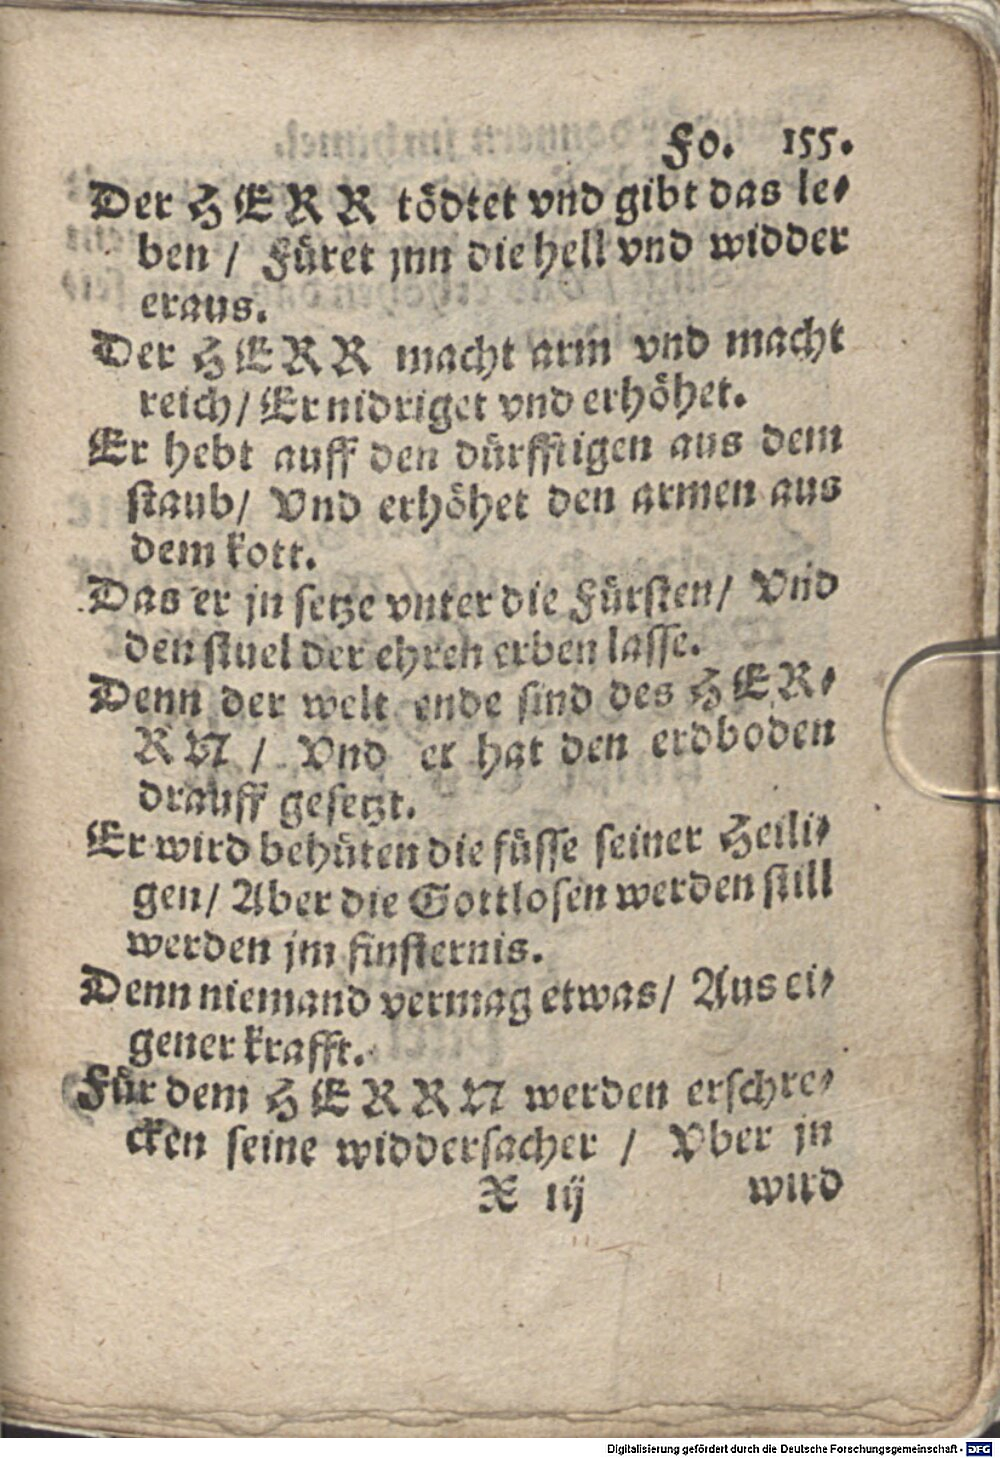 Fo. 155.
Der HERR tödtet vnd gibt das le-
ben / Füret jnn die hell vnd widder
eraus.
Der HERR macht arm vnd macht
reich / Er nidriget vnd erhöhet.
Er hebt auff den dürfftigen aus dem
staub / Vnd erhöhet den armen aus
dem kott.
Das er jn setze vnter die Fürsten / Vnd
den stuel der ehren erben lasse.
Denn der welt ende sind des HER-
RN / Vnd er hat den erdboden
drauff gesetzt.
Er wird behüten die füsse seiner Heili-
gen / Aber die Gottlosen werden still
werden jm finsternis.
Denn niemand vermag etwas / Aus ei-
gener krafft.
Für dem HERRN werden erschre-
cken seine widdersacher / Vber jn
X iij wird
Digitalisierung gefördert durch die Deutsche Forschungsgemeinschaft - DFG